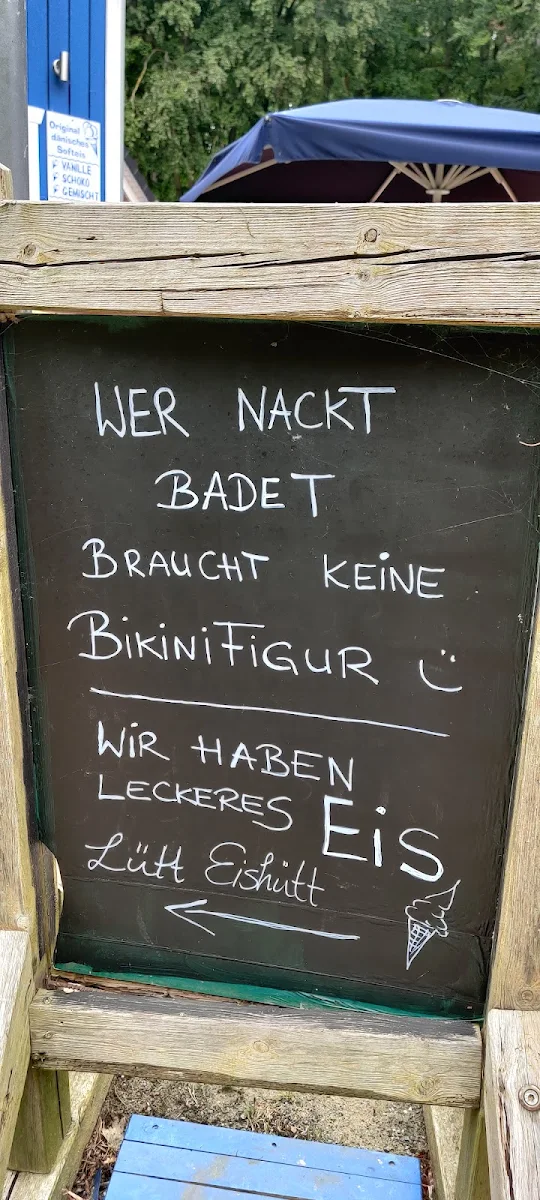 Original
dänisches
Softeis
VANILLE
SCHOKO
GEMISCHT
WER NACKT
BADET
BRAUCHT KEINE
BIKINIFIGUR
WIR HABEN
LECKERES EIS
Lütt Eishütt